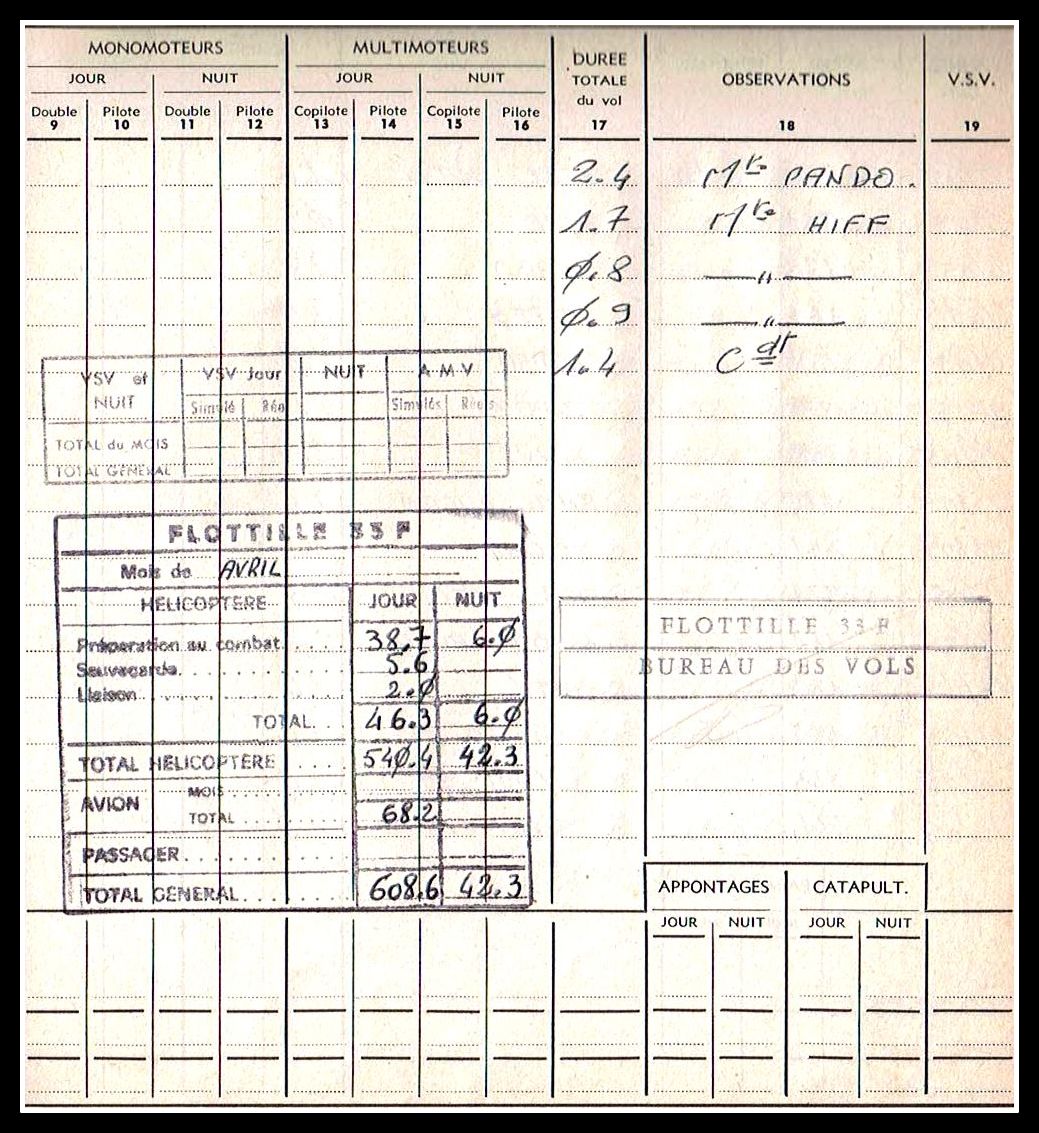 MONOMOTEURS MULTIMOTEURS DUREE TOTALE du vol OBSERVATIONS V.S.V.
JOUR NUIT JOUR NUIT
Double Pilote Double Pilote Copilote Pilote Copilote Pilote
9 10 11 12 13 14 15 16 17 18 19
2.4 Mre PANDO.
1.7 Mre HIFF
Ø.8 —〃—
Ø.9 —〃—
1.4 Cdt
VSV et NUIT VSV Jour NUIT A M V
Simulé Réel Simulés Réels
TOTAL du MOIS
TOTAL GENERAL
FLOTTILLE 33 F
Mois de AVRIL
HELICOPTERE JOUR NUIT
Préparation au combat 38,7 6.Ø
Sauvegarde 5.6
Liaison 2.Ø
TOTAL 46.3 6.Ø
TOTAL HELICOPTERE 54Ø.4 42.3
AVION MOIS
TOTAL 68.2
PASSAGER
TOTAL GENERAL 608.6 42.3
FLOTTILLE 33-F
BUREAU DES VOLS
APPONTAGES CATAPULT.
JOUR NUIT JOUR NUIT